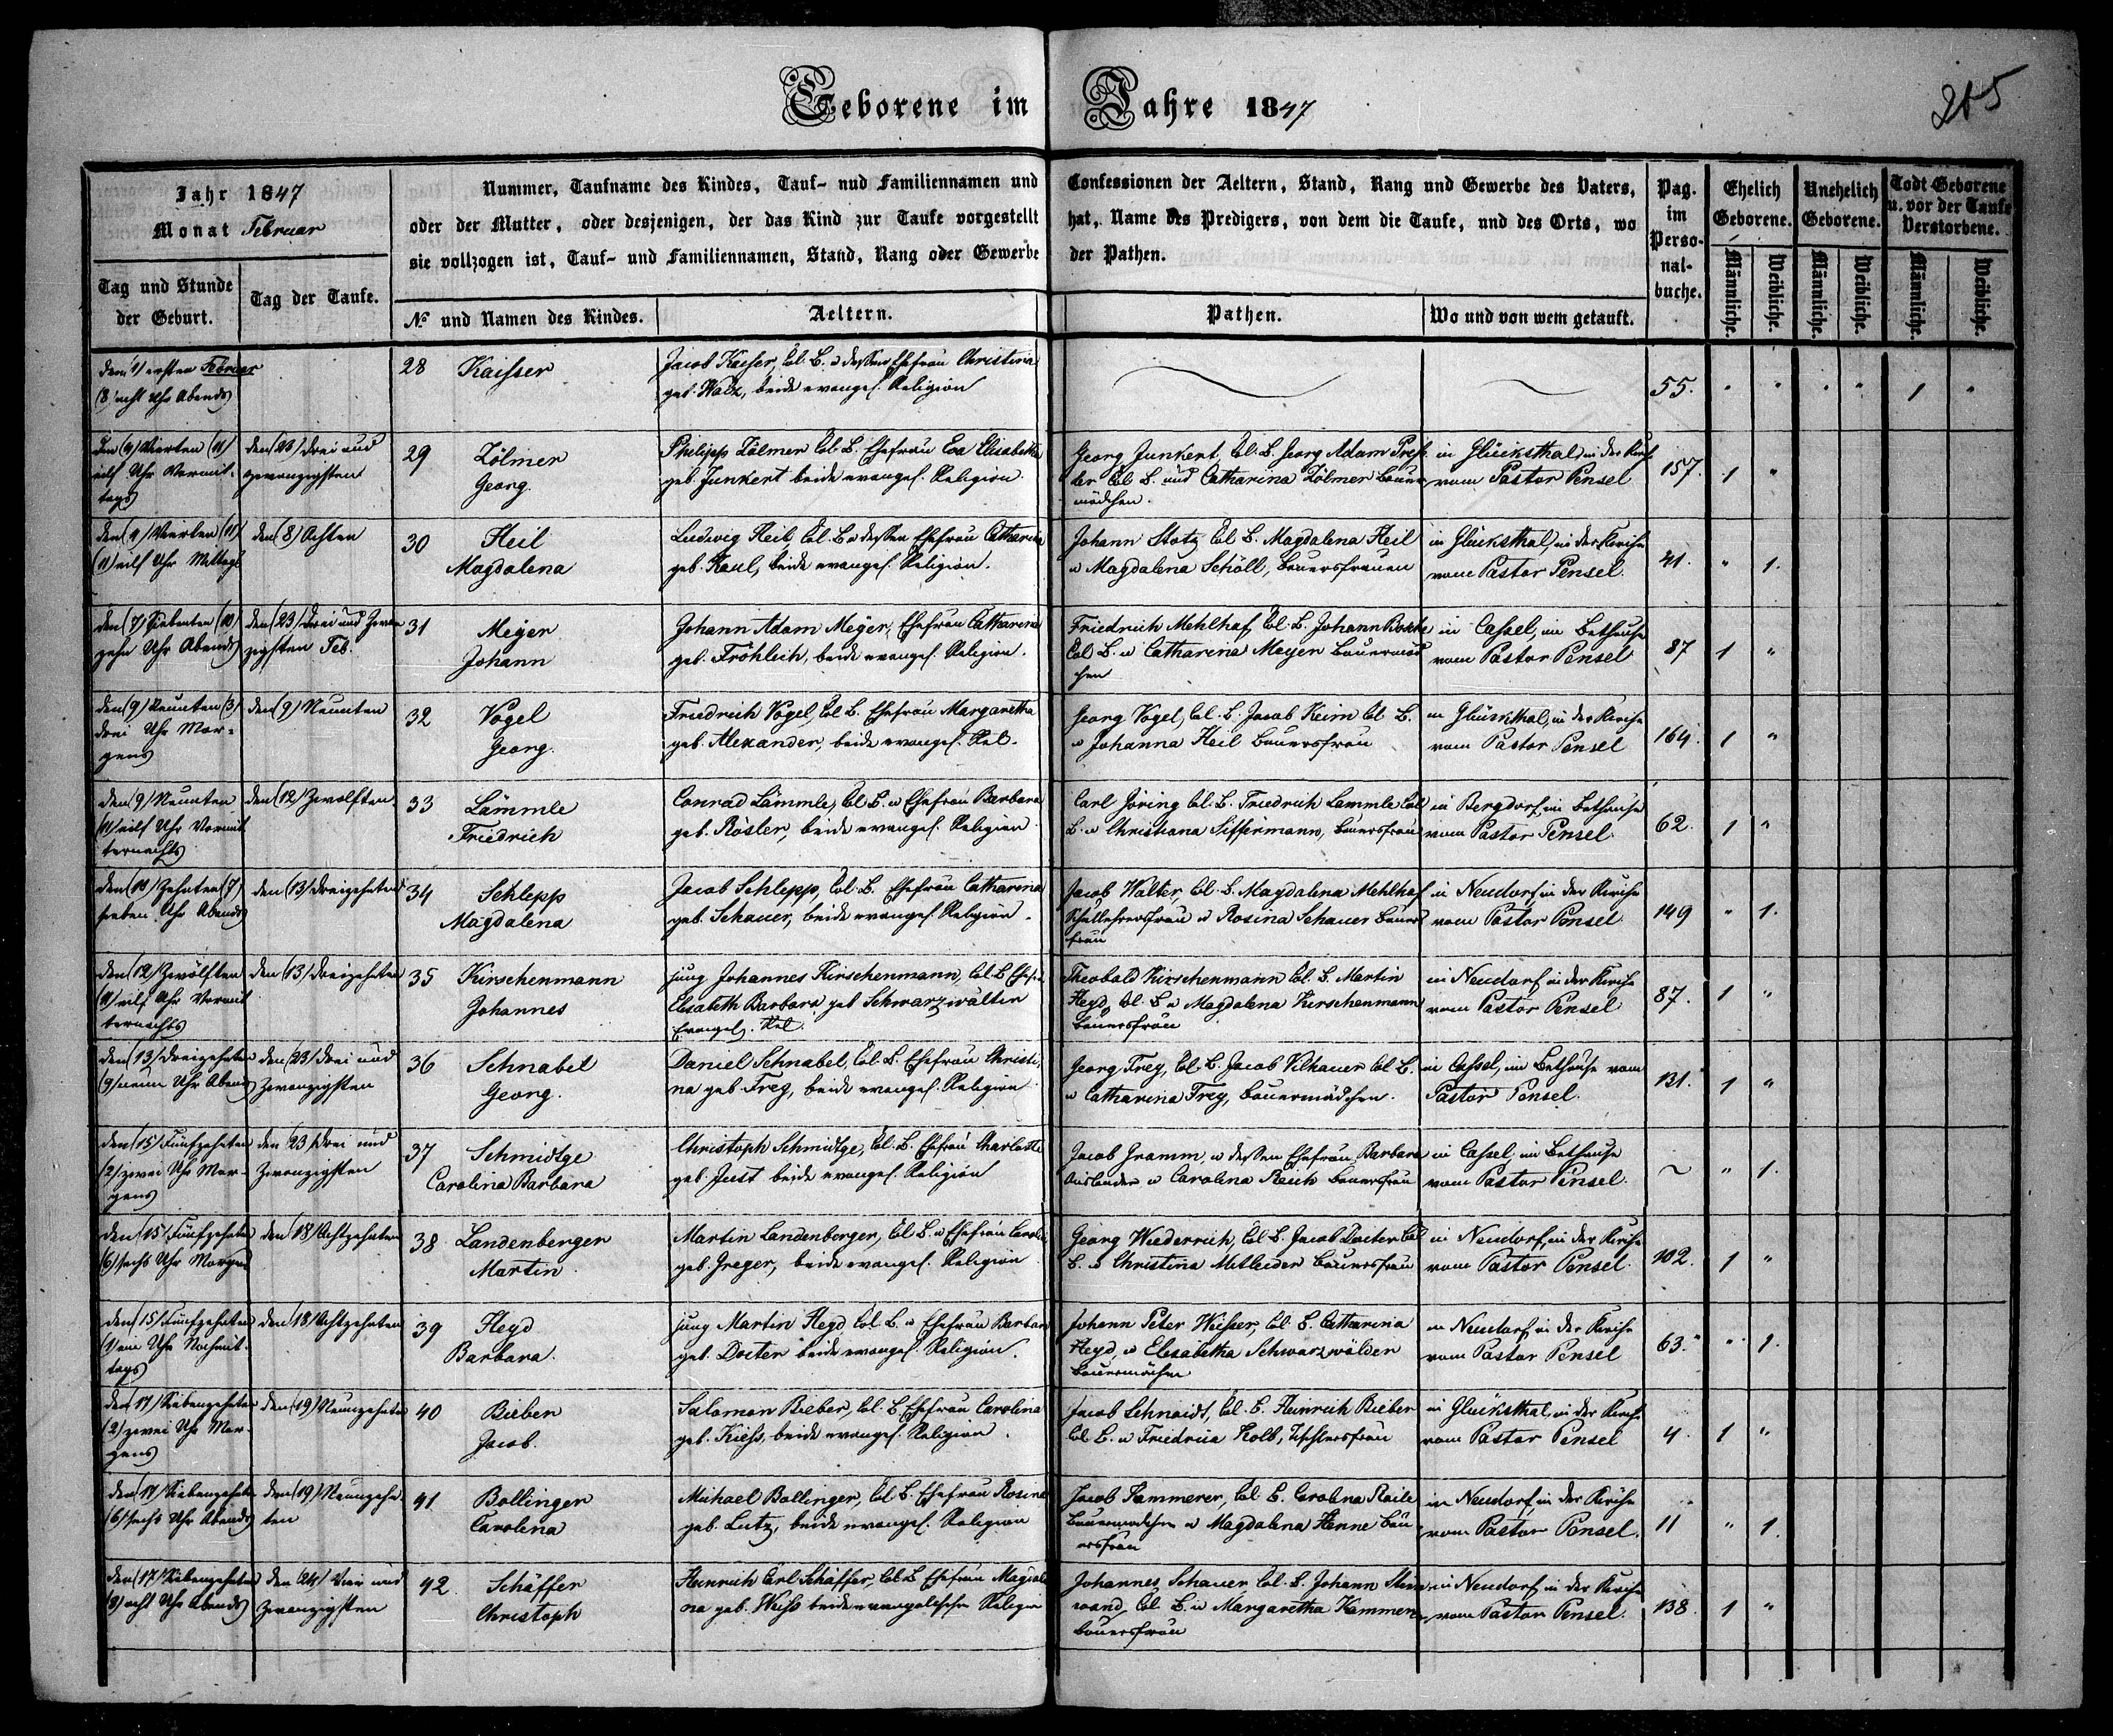 Geborene im Jahre 1847
215
Jahr 1847
Monat Februar
Nummer, Taufname des Kindes, Tauf- nud Familiennamen und Confessionen der Aeltern, Stand, Rang und Gewerbe des Vaters,
oder der Mutter, oder desjenigen, der das Kind zur Taufe vorgestellt hat, Name des Predigers, von dem die Taufe, und des Orts, wo
sie vollzogen ist, Tauf- und Familiennamen, Stand, Rang oder Gewerbe der Pathen.
Pag. im Perso- nal- buche.
Ehelich Geborene.
Unehelich Geborene.
Todt Geborene u. vor der Taufe Verstorbene.
Tag und Stunde der Geburt.
Tag der Taufe.
No und Namen des Kindes.
Aeltern.
Pathen.
Wo und von wem getauft.
Männliche. Weibliche. Männliche. Weibliche. Männliche. Weibliche.
den (1) ersten Februar 28 Kaisser Jacob Kaiser, Col. B. u dessen Ehefrau Christina 55. " " " " 1 "
(8) acht Uhr Abends geb. Walz, beide evangel. Religion
den (4) Vierten (11) den (23) drei und 29 Zölmer Philipp Zölmer Col. B. Ehefrau Eva Elisabetha Georg Junkert, Col. B. Georg Adam in Glücksthal, in der 157. 1 "
eilf Uhr Vormit- zwanzigsten Georg. geb. Junkert beide evangel. Religion. Col. B. und Catharina Zölmer Bauer vom Pastor Pensel
tags mädchen.
den (4) Vierten (11) den (8) Achten 30 Heil Ludwig Heil, Col. B. u dessen Ehefrau Catharina Johann Stotz Col. B. Magdalena Heil in Glücksthal, in der Kirche 41. " 1.
(11) eilf Uhr Mittags Magdalena geb. Kaul, beide evangel. Religion. u Magdalena Schöll, Bauersfrauen vom Pastor Pensel.
den (7) Siebenten (10) den (23) drei und Zwan 31 Meyer Johann Adam Meyer, Ehefrau Catharina Friedrich Mehlhaf, Col. B. Johann in Cassel, im Bethause 87 1 "
zehn Uhr Abends zigsten Feb. Johann geb. Fröhlich, beide evangel. Religion. Col. B. u Catharina Meyer Bauermäd vom Pastor Pensel
chen
den (9) Neunten (3) den (9) Neunten 32 Vogel Friedrich Vogel, Col. B. Ehefrau Margaretha Georg Vogel, Col. B. Jacob Keim Col. B. in Glücksthal, in der Kirche 164. 1 "
drei Uhr Mor- Georg. geb. Alexander, beide evangel. Rel. u Johanna Heil Bauersfrau vom Pastor Pensel
gens
den (9) Neunten den (12) Zwölften 33 Lämmle Conrad Lämmle, Col. B. u Ehefrau Barbara Carl Jöring Col. B. Friedrich Lammle Col. in Bergdorf, im Bethause 62. 1 "
(11) eilf Uhr Vormit Friedrich geb. Rösler, beide evangel. Religion B. u Christiana Siffermann, Bauersfrau vom Pastor Pensel.
ternachts
den (10) Zehnten (7) den (13) dreizehnten 34 Schlepp Jacob Schlepp, Col. B. Ehefrau Catharina Jacob Walter, Col. B. Magdalena Mehlhaf in Neudorf, in der Kirche 149 " 1.
sieben Uhr Abends Magdalena geb. Schauer, beide evangel. Religion. Schullehrersfrau u Rosina Schauer Bauers vom Pastor Pensel
frau
den (12) Zwölften den (13) dreizehnten 35 Kirschenmann jung Johannes Kirschenmann, Col. B. Ehefr. Theobald Kirschenmann Col. B. Martin in Neudorf, in der Kirche 87. 1 "
(11) eilf Uhr Vormit Johannes Elisabeth Barbara geb Schwarzwälter Heyd, Col. B. u Magdalena Kirschenmann vom Pastor Pensel
ternachts Evangel. Rel. Bauersfrau
den (13) dreizehnten den (23) drei und 36 Schnabel Daniel Schnabel, Col. B. Ehefrau Christi, Georg Frey, Col. B. Jacob Vilhauer Col. B. in Cassel, im Bethause vom 131. 1 "
(9) neun Uhr Abends Zwanzigsten Georg. na geb. Frey, beide evangel. Religion u Catharina Frey, Bauermädchen. Pastor Pensel.
den (15) Fünfzehnten den (23) drei und 37 Schmidtge Christoph Schmidtge, Col. B. Ehefrau Charlotte Jacob Gramm, u dessen Ehefrau Barbara in Cassel im Bethause ~ " 1.
(2) zwei Uhr Mor- Zwanzigsten Carolina Barbara geb. Just beide evangel. Religion Ausländer u Carolina Reich Bauersfrau vom Pastor Pensel.
gens
den (15) Fünfzehnten den (18) Achtzehnten 38 Landenberger Martin Landenberger, Col. B. u Ehefrau Georg Wiederrich, Col. B. Jacob Docter Col. in Neudorf, in der Kirche 102. 1 "
(6) sechs Uhr Morgens Martin geb. Greger, beide evangel. Religion B. u Christina Mitleider Bauersfrau vom Pastor Pensel.
den (15) Fünfzehnten den (18) Achtzehnten 39 Heyd jung Martin Heyd Col. B. u Ehefrau Barbara Johann Peter Weisser, Col. B. Catharina in Neudorf, in der Kirche 63. " 1.
(1) ein Uhr Nachmit- Barbara. geb. Docter beide evangel. Religion. Heyd, u Elisabetha Schwarzwälder vom Pastor Pensel
tags Bauermädchen
den (17) Siebenzehnten den (19) Neunzehnten 40 Bieber Salomon Bieber, Col. B. Ehefrau Carolina Jacob Schnaidt, Col. B. Heinrich Bieber in Glücksthal, in der Kirche 4. 1 "
(2) zwei Uhr Mor- Jacob. geb. Kiess, beide evangel. Religion. Col. B. u Friedrica Kolb, Tischlersfrau vom Pastor Pensel
gens
den (17) Siebenzehnten den (19) Neunzehn 41 Bollinger Michael Bollinger, Col. B. Ehefrau Rosina Jacob Kammerer, Col. B. Carolina Raile in Neudorf, in der Kirche 11 " 1.
(6) sechs Uhr Abends ten Carolina geb. Lutz, beide evangel. Religion Bauermädchen u Magdalena Henne Bau vom Pastor Pensel.
ersfrau
den (17) Siebenzehnten den (24) Vier und 42 Schäffer Heinrich Carl Schäffer, Col. B. Ehefrau Magdale Johannes Schauer Col. B. Johann Stein in Neudorf, in der Kirche 138. 1 "
(8) acht Uhr Abends Zwanzigsten Christoph na geb. Weiss beide evangelischer Religion wand, Col. B. u Margaretha Kammer vom Pastor Pensel.
Bauersfrau